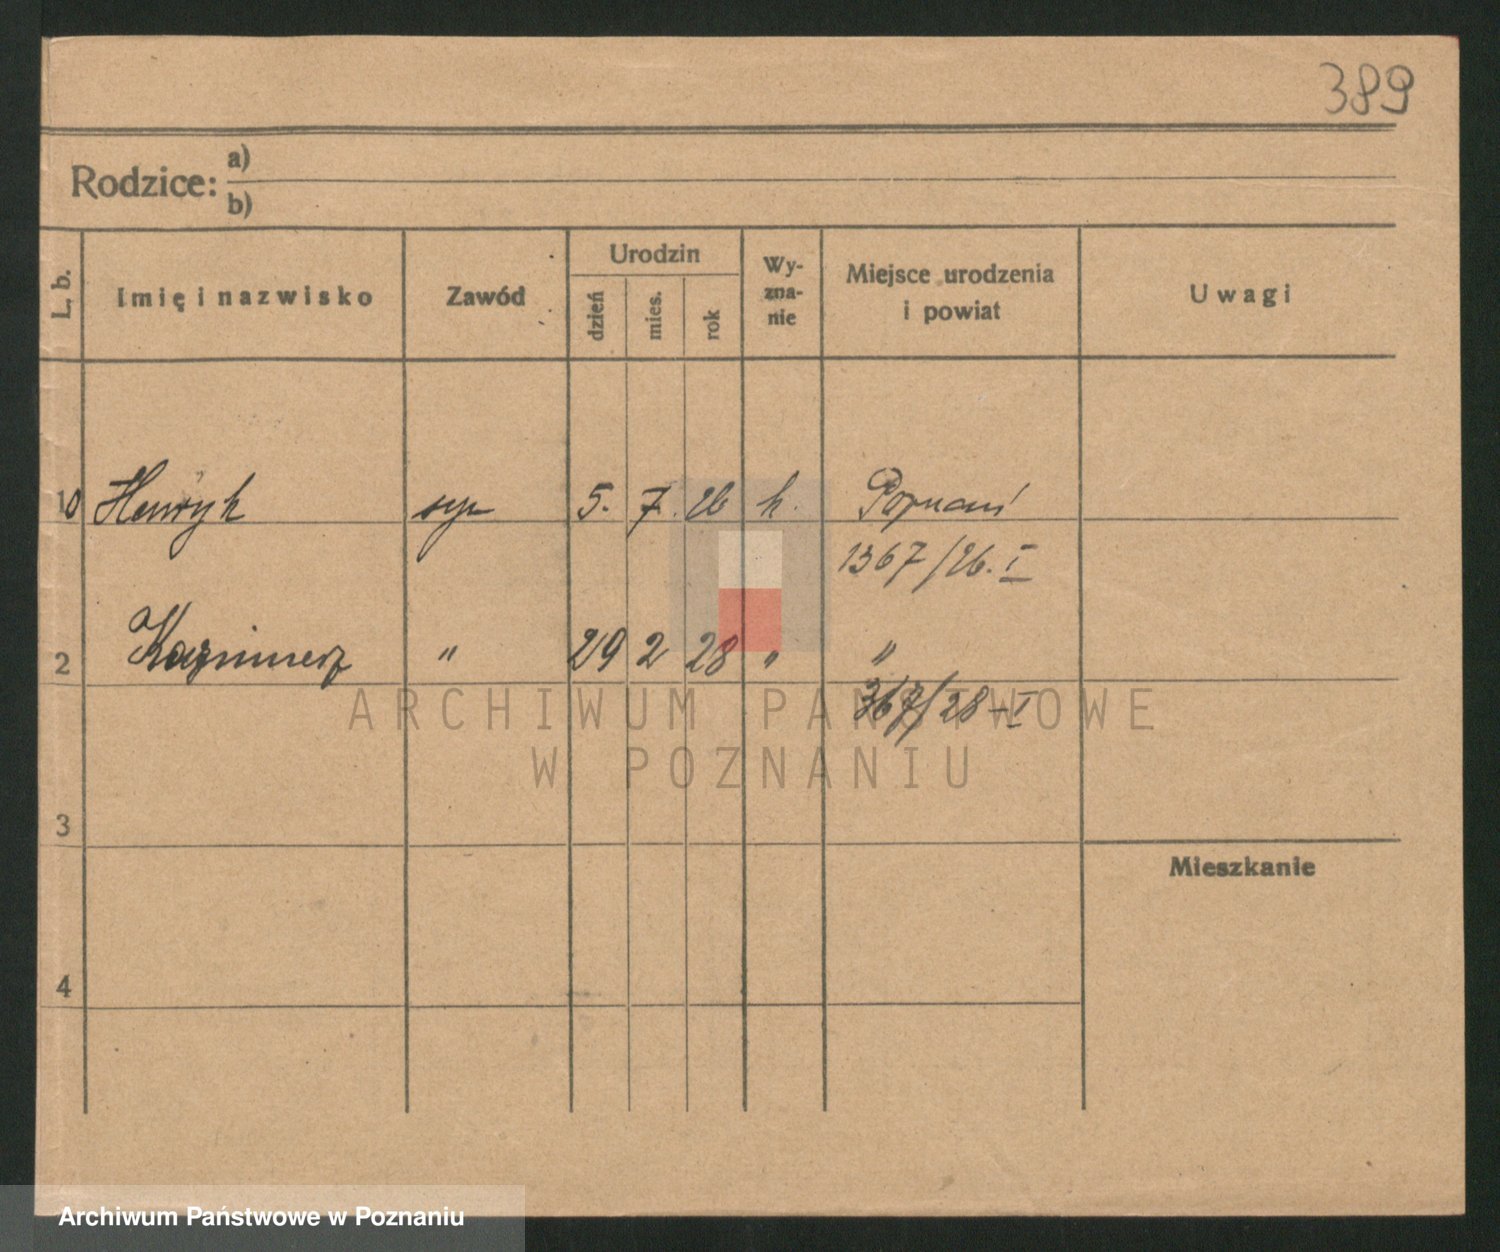 389
Rodzice: a)
b)
L. b. Imię i nazwisko Zawód Urodzin dzień mies. rok Wy-zna-nie Miejsce urodzenia i powiat Uwagi
10 Henryk syn 5. 7. 26 k. Poznań
1367/26. I
2 Kazimierz " 29 2 28 " "
367/28 - I
ARCHIWUM PAŃSTWOWE
W POZNANIU
3
Mieszkanie
4
Archiwum Państwowe w Poznaniu